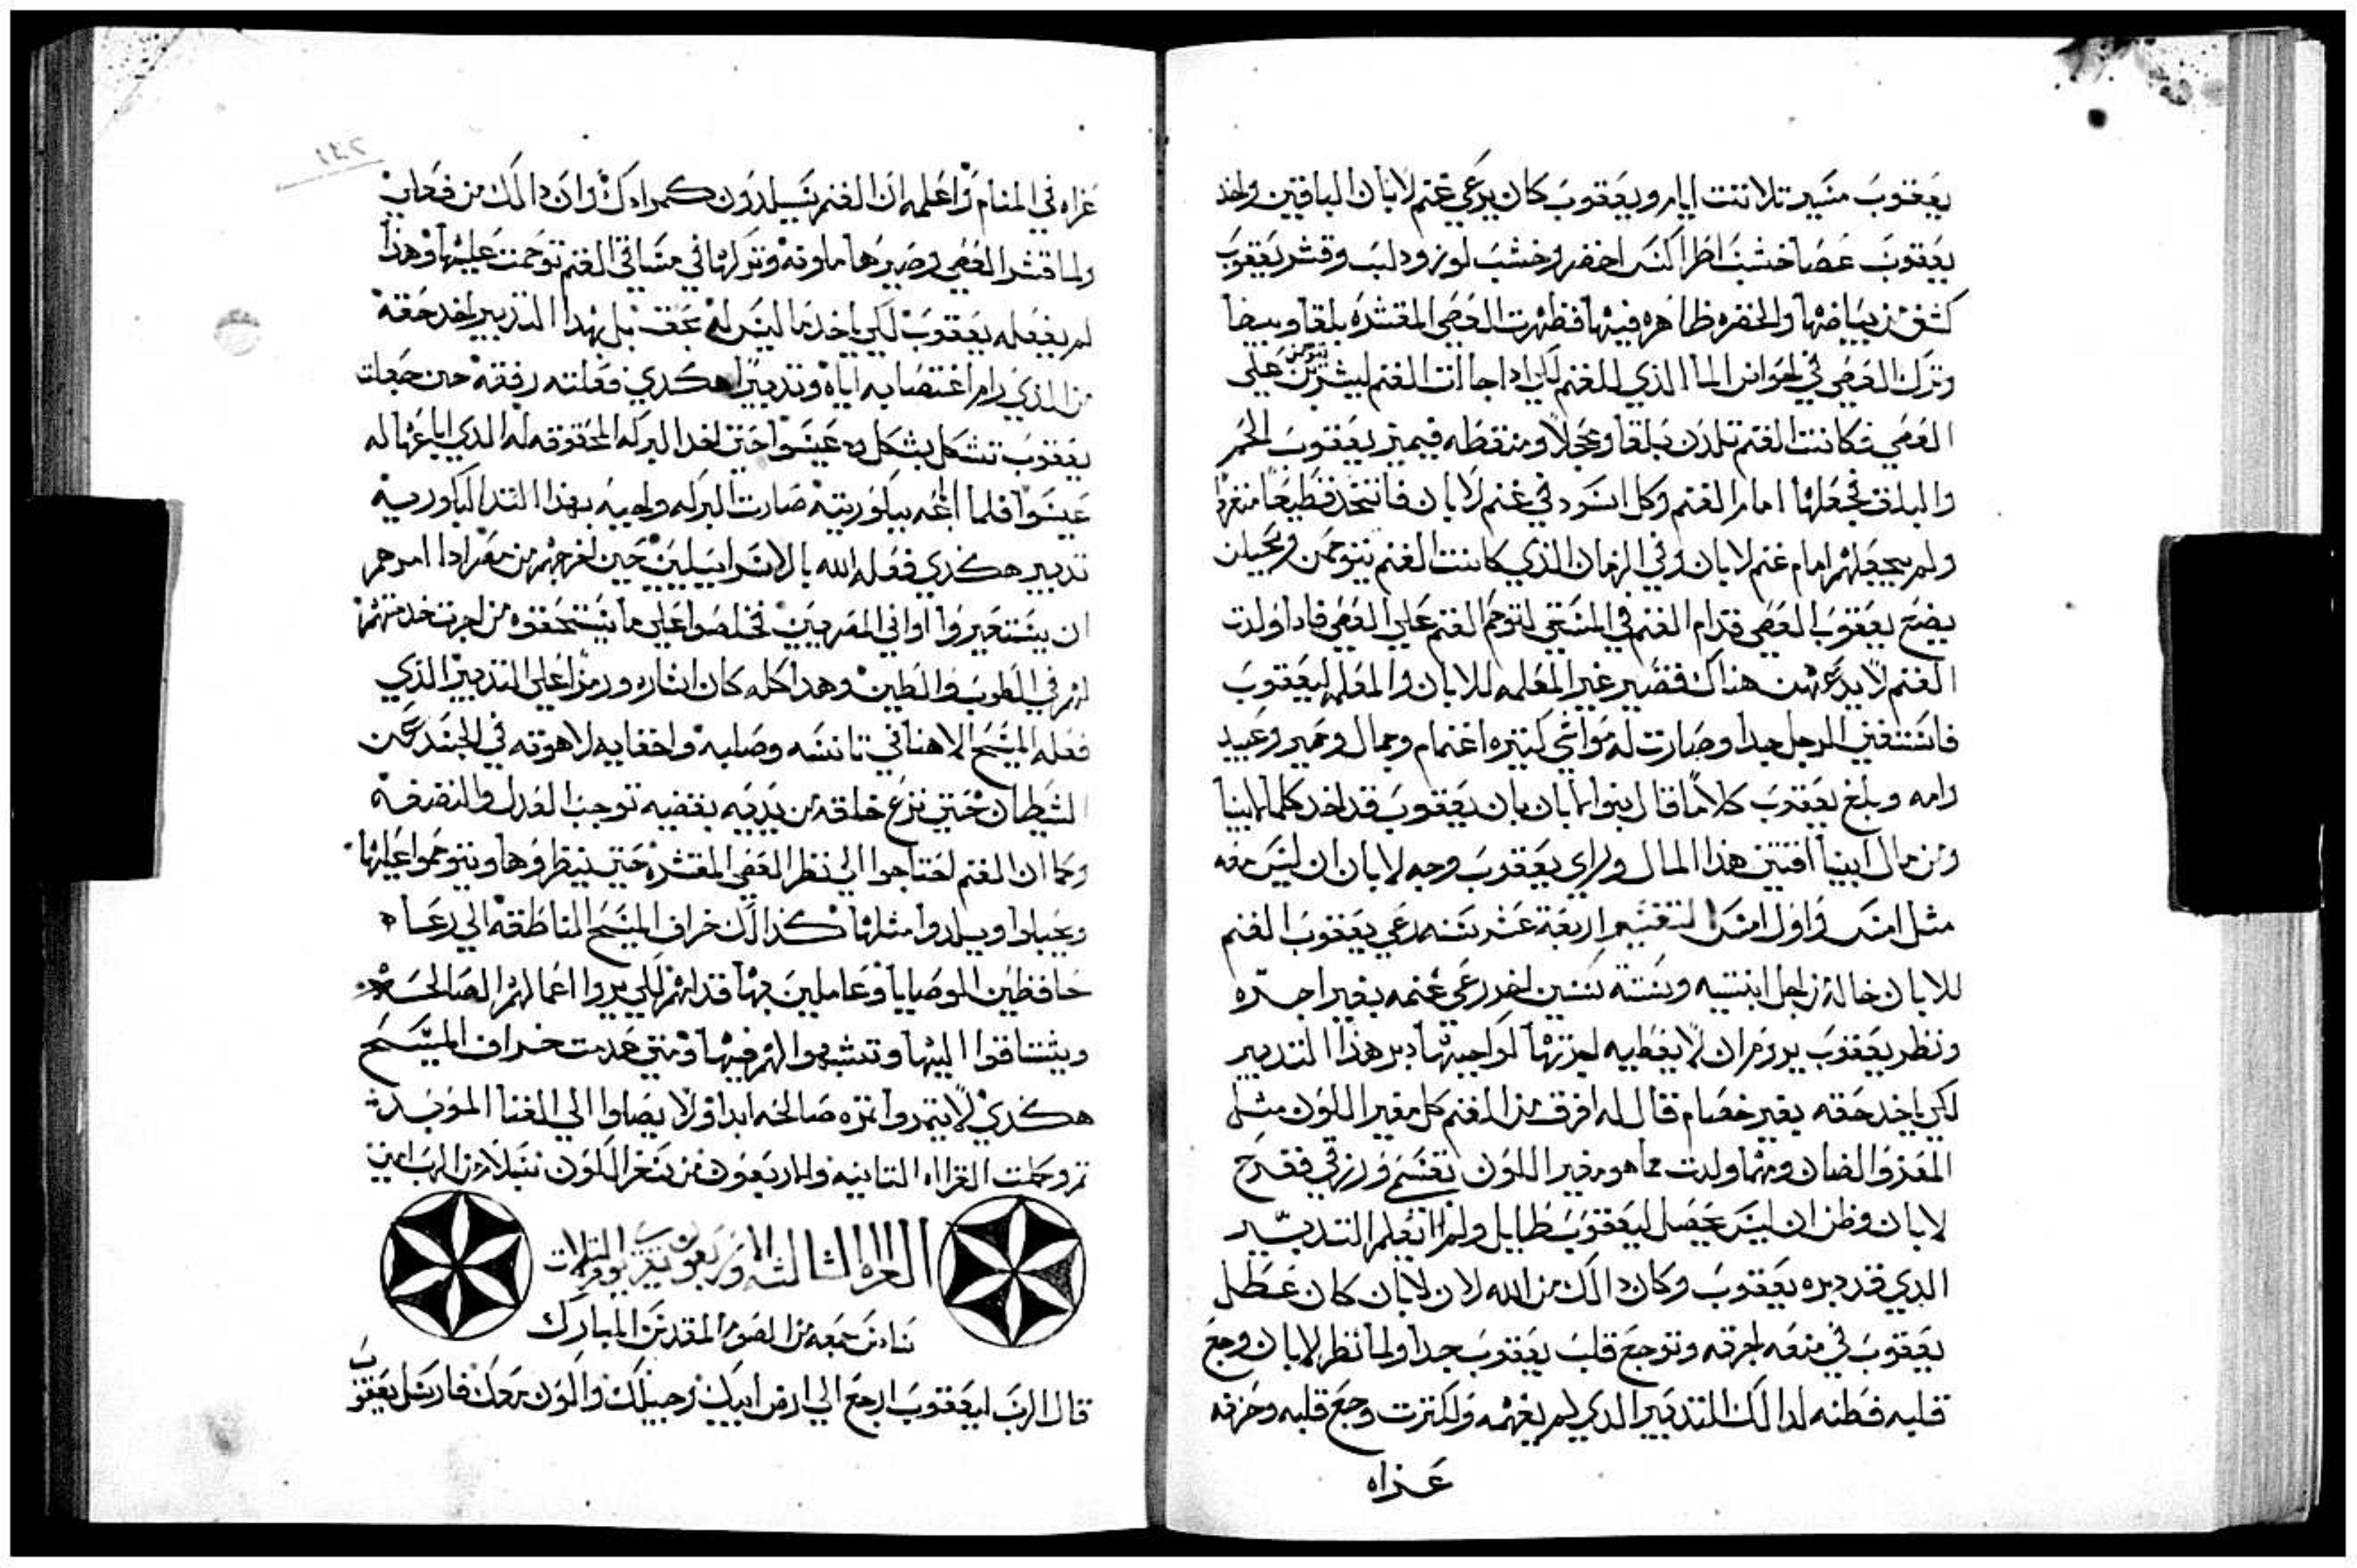 يعقوب مسيرت تلاتت ايام ويعقوب كان يرعي غنم لابان الباقين واخد
يعقوب عصا خشب اصطراكنس اخضر وخشب لوز ودلب وقشر يعقوب
كشف من بياضها والخضره ظاهره فيها فظهرت العصي المقشره بلقا وبيضا
وترك العصي في اجوانس الما الذي للغنم لكي ادا جاات الغنم ليشربن يتوحمن علي
العصي فكانت الغنم تلدن بلقا ومحجلا ومنقطه فيميز يعقوب الحمر
والبلق فجعلها امام الغنم وكل اسود في غنم لابان فاتخد قطيعا منفردا
ولم يجعلهم امام غنم لابان وفي الزمان الذي كانت الغنم يتوحمن ويحبلن
يضع يعقوب العصي قدام الغنم في المسقي لتوحم الغنم علي العصي فادا ولدت
الغنم لا يدعهن هناك فتصير غير المعلمه للابان والمعلمه ليعقوب
فاستغني الرجل جدا وصارت له مواشي كتيره اغنام وجمال وحمير وعبيد
وامه وبلغ يعقوب كلاما قال بنوا لابان بان يعقوب قد اخد كلما لابينا
ومن مال ابينا اقتني هذا المال وراي يعقوب وجه لابان ان ليس معه
مثل امس واول امس لتتميم اربعة عشر سنه رعي يعقوب الغنم
للابان خاله من اجل ابنتيه وستة سنين اخر رعي غنمه بغير اجره
ونظر يعقوب يروم ان لا يعطيه اجرتها لواجبتها دبر هذا التدبير
لكي ياخد حقه بغير خصام قال له افرق من الغنم كل مغير اللون مثل
المعز والضان ومهما ولدت مما هو مغير اللون تقسم ورزقي ففرح
لابان وظن ان ليس يحصل ليعقوب طايل ولم اتعلم التدبير
الدي قد دبره يعقوب وكان دالك من الله لان لابان كان عطل
يعقوب في منعه اجرته وتوجع قلب يعقوب جدا ولما نظر لابان وجع
قلبه فطنه لدالك التدبير الدي لم يفهمه ولكترت وجع قلبه وحزنه
عزاه
١٤٢
عزاه في المنام واعلمه ان الغنم سيلدون كمرادك وان دالك من فعلي
ولما قشر العصي وصيرها ملونه وتركها في مساقي الغنم توحمت عليها وهذا
لم يفعله يعقوب لكي ياخد ما ليس له بحق بل بهدا التدبير اخد حقه
من الذي رام اغتصابه اياه وتدبيرا هكدي فعلته رفقه حين جعلت
يعقوب تشكل بشكل عيسوا حتي اخد البركه المحقوقه له الدي اباعها له
عيسوا فلما باعه بكوريته صارت البركه واجبه بهذا التدا البكوريه
تدبير هكذي فعله الله بالاسراييليين حين اخرجهم من مصر ادا امرهم
ان يستعيروا اواني المصريين فخلصوا علي ما يستحقوه من اجرت خدمتهم
لهم في الطوب والطين وهدا كله كان اشاره ورمزا علي التدبير الذي
فعله المسيح الاهنا في تانسه وصلبه واخفايه لاهوته في الجسد عن
الشيطان حتي نزع خلقه من يديه بقضيه توجب العدل والنصفه
وكما ان الغنم احتاجوا الي نظر العصي المقشره حتي ينظروها ويتوحموا عليها
ويحبلوا ويلدوا مثلها كذالك خراف المسيح الناطقه الي رعاه
حافظين الوصايا وعاملين بها قدامهم لكي يروا اعمالهم الصالحه
ويشتاقوا اليها وتشبهوا لهم فيها ومتي عدمت خراف المسيح
هكذي لا يتمروا ثمره صالحه ابدا ولا يصلوا الي الغنا الموبد
تم وكملت القراه التانيه والاربعون من سفر الكون بسلام من الرب امين
القراه الثالثه والاربعون تقرا يوم التلات
سادس جمعه من الصوم المقدس المبارك
قال الرب ليعقوب ارجع الي ارض ابيك وجيلك واكون معك فارسل يعقوب